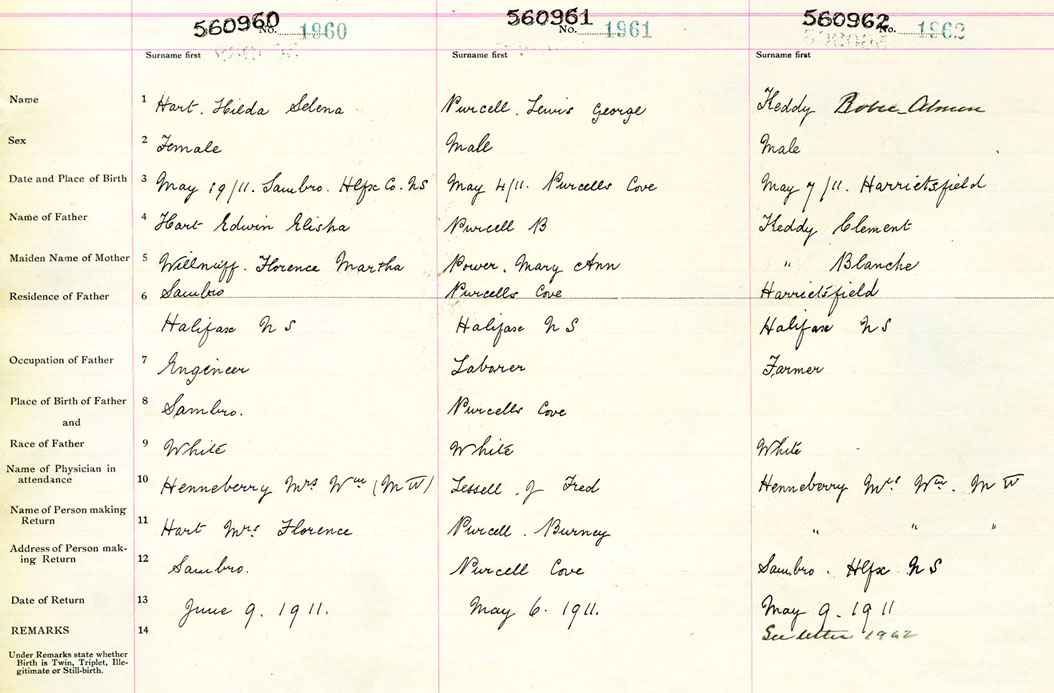 560960 No. 1960 560961 No. 1961 560962 No. 1962
Surname first Surname first Surname first
Name 1 Hart. Hilda Selena Purcell. Lewis George Keddy
Sex 2 Female Male Male
Date and Place of Birth 3 May 19/11. Sambro. Hlfx Co. NS May 4/11. Purcells Cove May 7/11. Harrietsfield
Name of Father 4 Hart Edwin Elisha Purcell B Keddy Clement
Maiden Name of Mother 5 Florence Martha Power. Mary Ann " Blanche
Residence of Father 6 Sambro Purcells Cove Harrietsfield
Halifax N S Halifax N S Halifax N S
Occupation of Father 7 Engineer Laborer Farmer
Place of Birth of Father 8 Sambro. Purcells Cove
and
Race of Father 9 White White White
Name of Physician in
attendance 10 Henneberry Mrs Wm (M W) Lessell. J Fred Henneberry Mrs Wm. M W
Name of Person making
Return 11 Hart Mrs Florence Purcell. Burney " " "
Address of Person mak-
ing Return 12 Sambro. Purcell Cove Sambro. Hlfx N S
Date of Return 13 June 9. 1911. May 6. 1911. May 9. 1911
REMARKS 14 See letter 1962
Under Remarks state whether
Birth is Twin, Triplet, Ille-
gitimate or Still-birth.